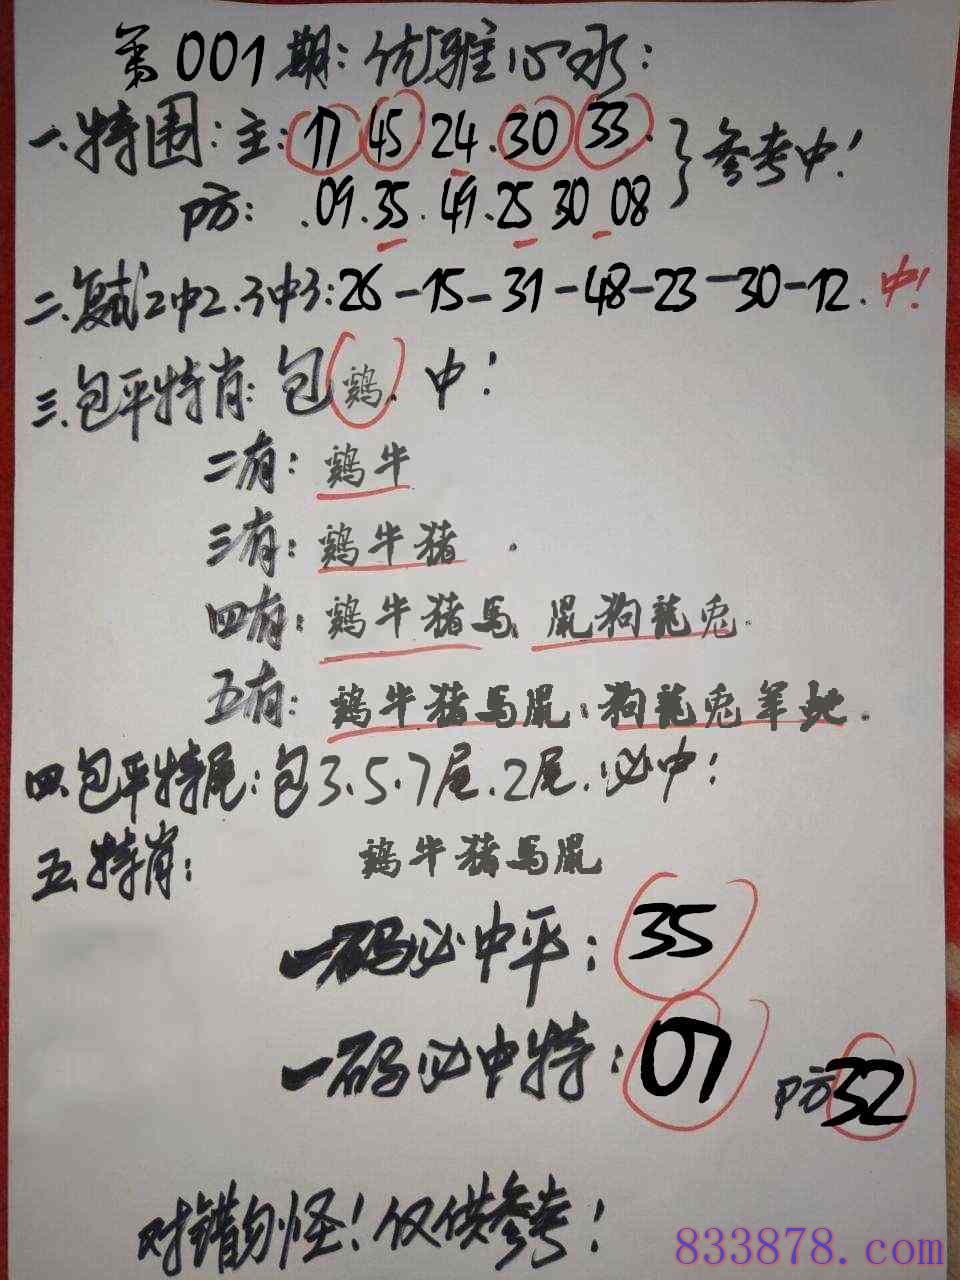 第001期:优雅心水:
一.特围:主:17.45.24.30.33.}参考中!
防:.09.35.49.25 30 08
二.复试2中2.3中3:26-15-31-48-23-30-12.中!
三.包平特肖:包鷄.中!
二有:鷄牛
三有:鷄牛猪.
四有:鷄牛猪馬.鼠狗龍兔.
五有:鷄牛猪馬鼠.狗龍兔羊蛇.
四.包平特尾:包3.5.7尾.2尾.必中!
五.特肖:鷄牛猪馬鼠
一码必中平:35
一码必中特:07 防32
对错勿怪!仅供参考!
833878.com